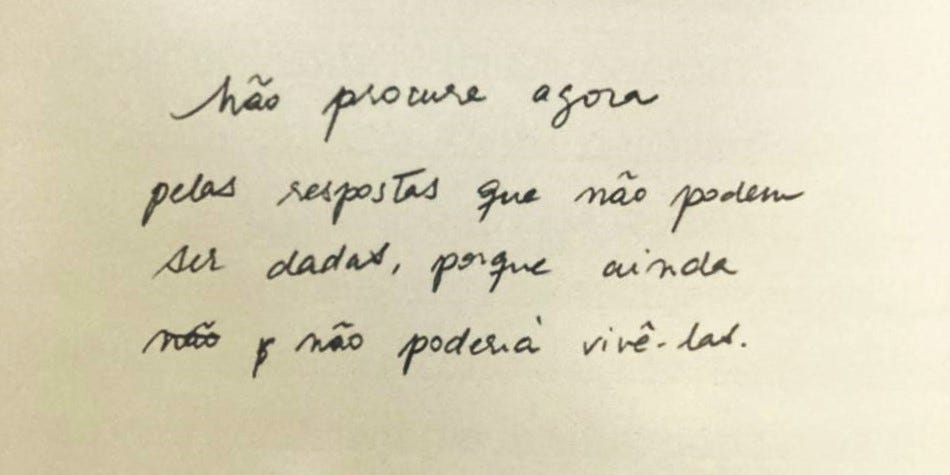 Não procure agora
pelas respostas que não podem
ser dadas, porque ainda
~~não~~ não poderia vivê-las.